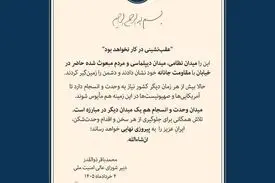 بسم الله الرحمن الرحیم
"عقب‌نشینی در کار نخواهد بود"
این را میدان نظامی، میدان دیپلماسی و مردم مبعوث شده حاضر در
خیابان با مقاومت جانانه خود نشان دادند و دشمن را زمین‌گیر کردند.
حالا بیش از هر زمان دیگر کشور نیاز به وحدت و انسجام دارد تا
آمریکایی‌ها و صهیونیست‌ها در این زمینه هم مأیوس شوند.
میدان وحدت و انسجام هم یک میدان دیگر در مبارزه است.
تلاش همگانی برای جلوگیری از هر سخن و اقدام وحدت‌شکن،
ایران عزیز را به پیروزی نهایی خواهد رساند؛
ان‌شاءالله.
محمدباقر ذوالقدر
دبیر شورای عالی امنیت ملی
۲ خردادماه ۱۴۰۵